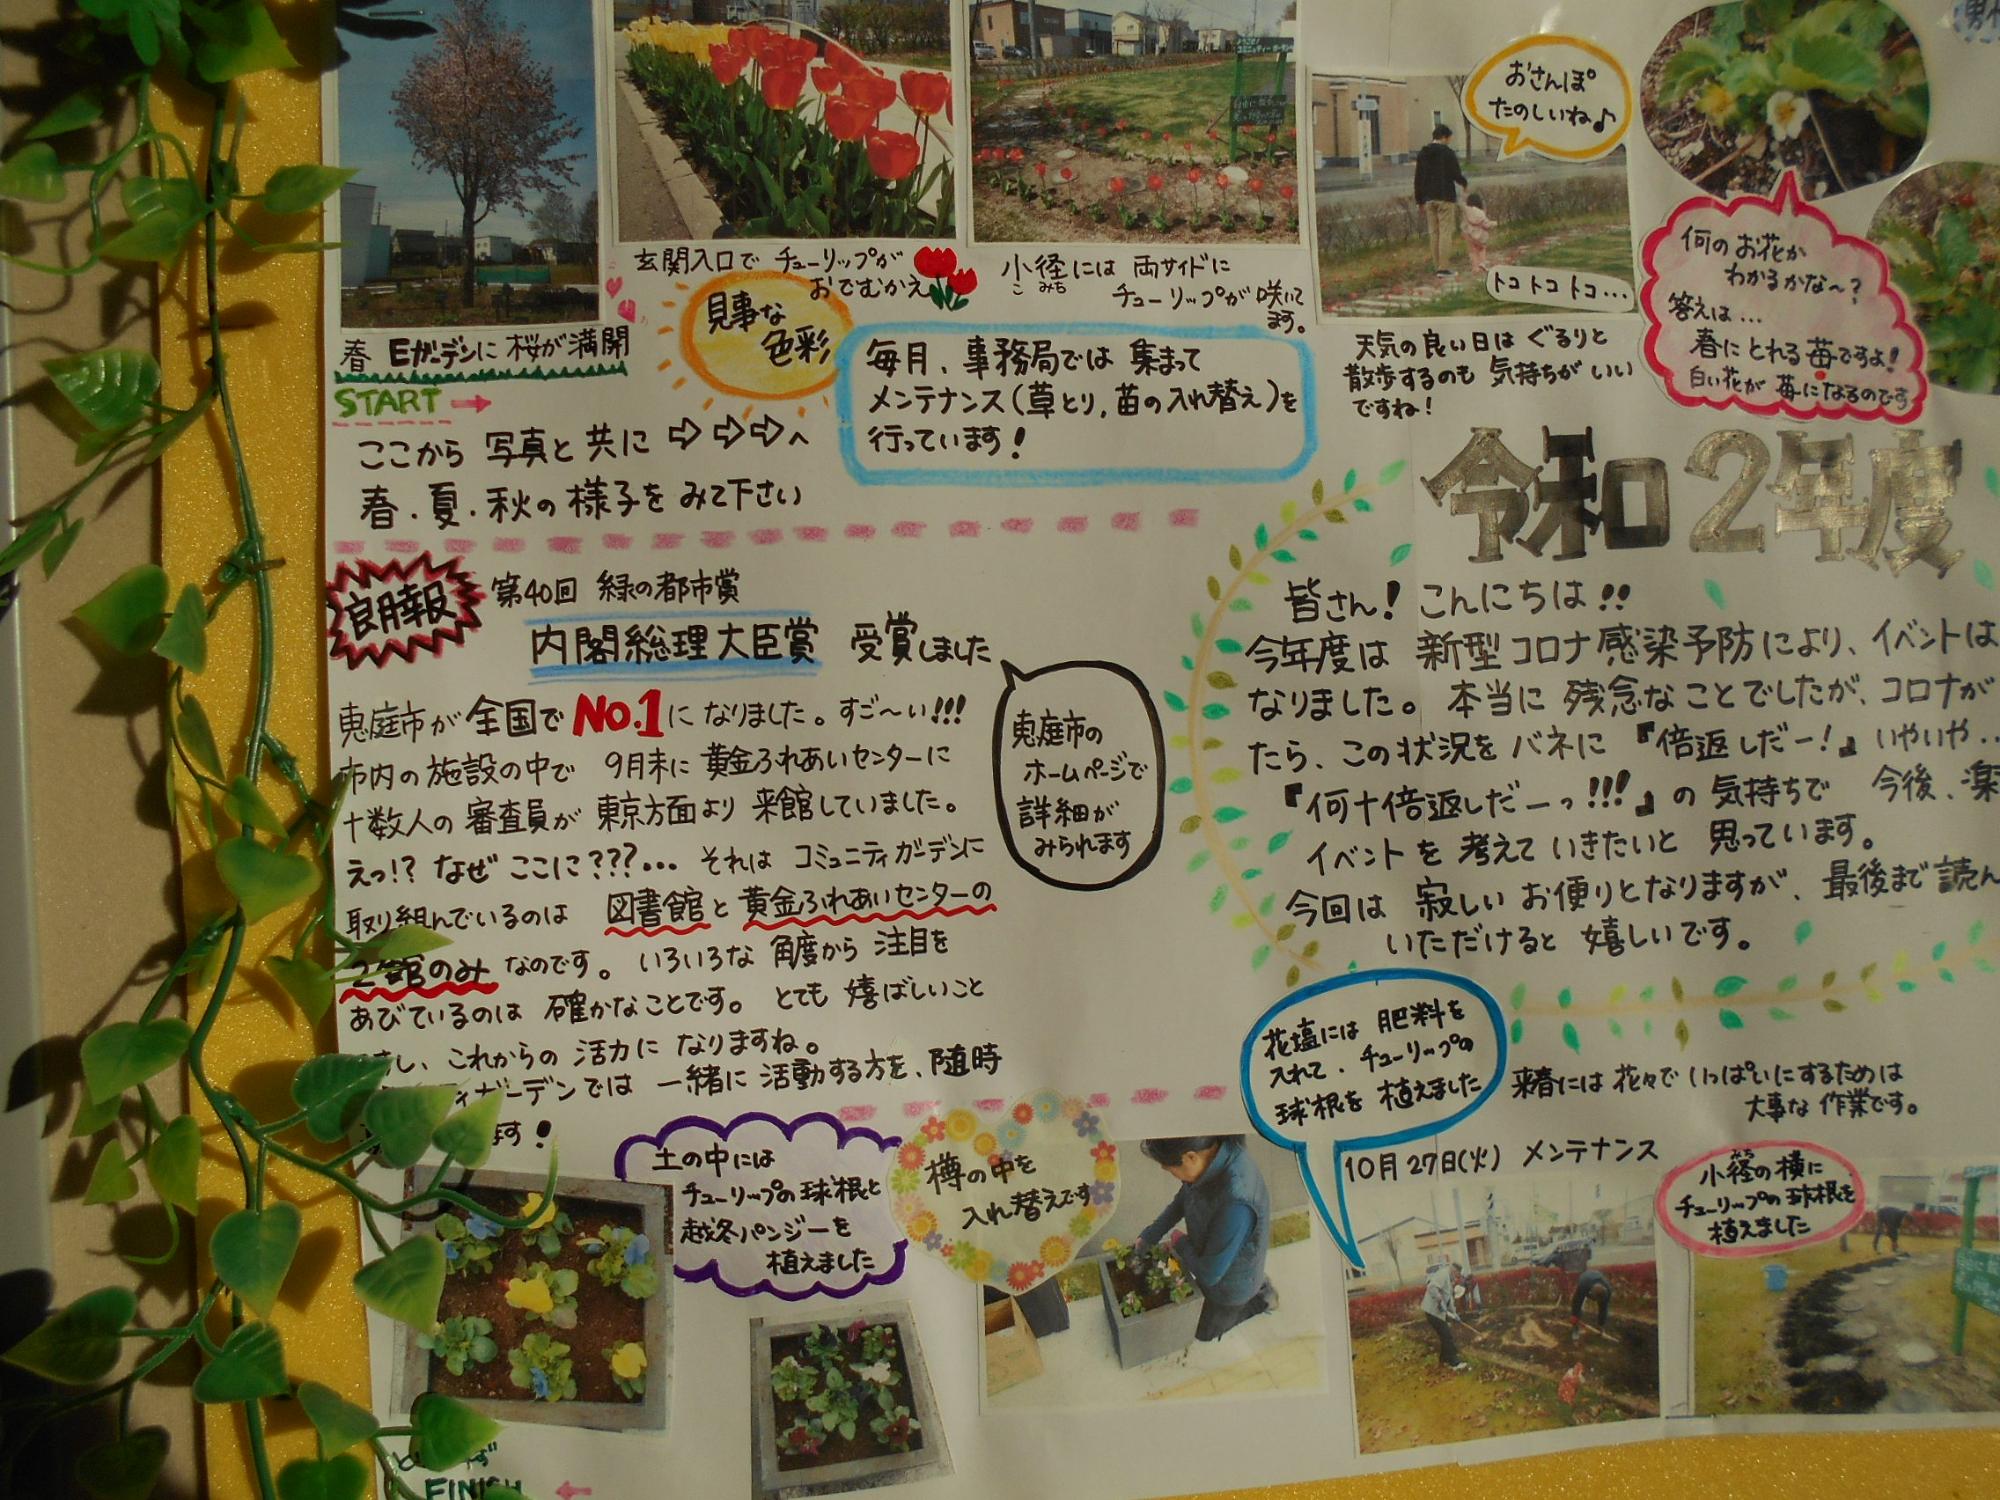 春 Eガーデンに 桜が満開
START →
玄関入口で チューリップが
おでむかえ
見事な
色彩
小径には 両サイドに
こみち
チューリップが 咲いて
ます。
おさんぽ
たのしいね♪
トコトコトコ…
天気の良い日は ぐるりと
散歩するのも 気持ちが いい
ですね！
何の お花か
わかるかな〜？
答えは…
春に とれる 苺ですよ！
白い花が 苺に なるのです
毎月、事務局では 集まって
メンテナンス(草とり,苗の入れ替え)を
行っています！
ここから 写真と 共に ⇨⇨⇨へ
春.夏.秋の 様子を みて下さい
朗報
第40回 緑の都市賞
内閣総理大臣賞 受賞しました
恵庭市が 全国で No.1に なりました。すご〜い!!!
市内の 施設の中で 9月末に 黄金ふれあいセンターに
十数人の 審査員が 東京方面より 来館していました。
えっ!? なぜ ここに???... それは コミュニティガーデンに
取り組んでいるのは 図書館と 黄金ふれあいセンターの
2館のみ なのです。いろいろな 角度から 注目を
あびているのは 確かなことです。とても 嬉ばしいこと
し、これからの 活力に なりますね。
ィガーデンでは 一緒に 活動する方を、随時
ます！
恵庭市の
ホームページで
詳細が
みられます
令和2年度
皆さん！ こんにちは!!
今年度は 新型コロナ感染予防により、イベントは
なりました。本当に 残念なことでしたが、コロナが
たら、この状況を バネに 『倍返しだー！』 いやいや..
『何十倍返しだーっ!!!』の 気持ちで 今後、楽
イベントを 考えて いきたいと 思っています。
今回は 寂しい お便りとなりますが、最後まで 読ん
いただけると 嬉しいです。
花壇には 肥料を
入れて、チューリップの
球根を 植えました
来春には 花々で いっぱいにするためは
大事な 作業です。
10月27日(火) メンテナンス
小径の横に
みち
チューリップの 球根を
植えました
土の中には
チューリップの 球根と
越冬パンジーを
植えました
樽の中を
入れ替えです
FINISH ←